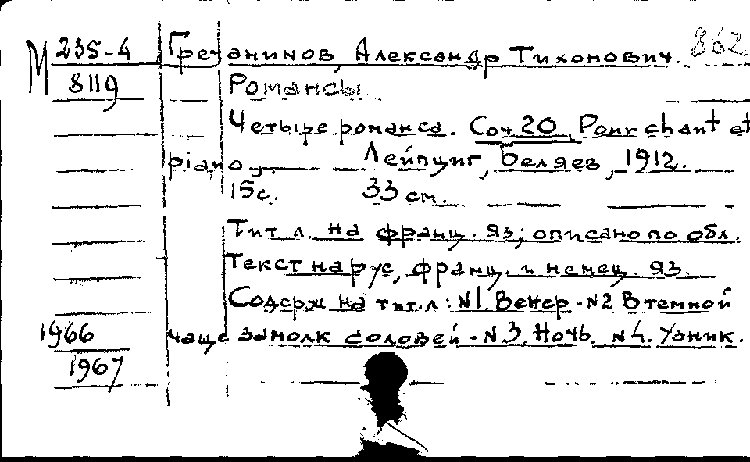 М 235-4 Гречанинов, Александр Тихонович. 862
8119 Романсы.
Четыре романса. Соч. 20. Pour chant et
piano. Лейпциг, Беляев, 1912.
15 с. 33 см.
Тит. л. на франц. яз; описано по обл.
Текст на рус, франц. и немец. яз.
Содерж на тит. л: N1. Вечер - N2 В темной
1966 чаще замолк соловей - N3. Ночь. N4. Узник.
1967